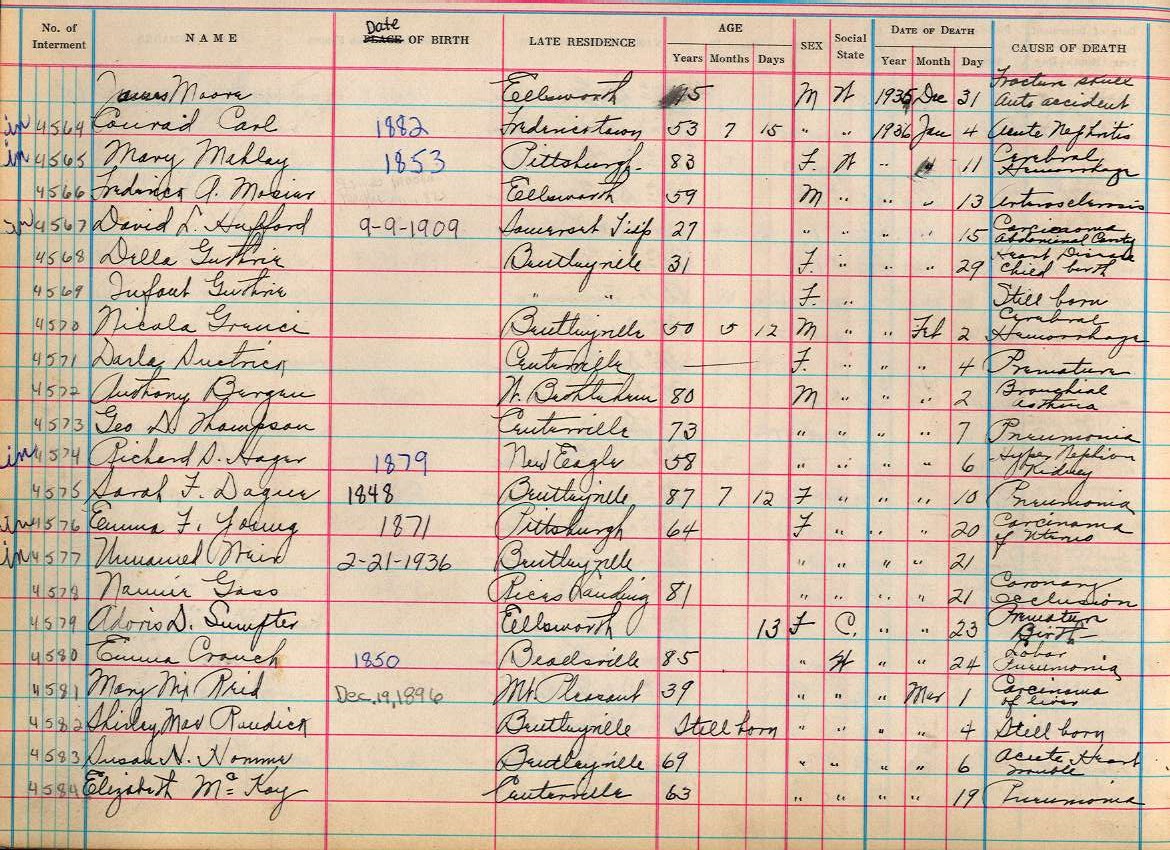 No. of Interment NAME Date PLACE OF BIRTH LATE RESIDENCE AGE Years Months Days SEX Social State DATE OF DEATH Year Month Day CAUSE OF DEATH
James Moore Ellsworth 75 M W 1935 Dec 31 Fracture skull Auto accident
in 4564 Conrad Carl 1882 Fredericktown 53 7 15 " " 1936 Jan 4 Acute Nephritis
in 4565 Mary Mehlay 1853 Pittsburgh. 83 F. W " " 11 Cerebral Hemorrhage
4566 Frederick A. Mosier Ellsworth 59 M " " " 13 Arterosclerosis
in 4567 David L. Hufford 9-9-1909 Somerset Twp 27 " " " " 15 Carcinoma Abdominal Cavity
4568 Della Guthrie Bentleyville 31 F. " " " 29 Heart Disease Child birth
4569 Infant Guthrie " " F. " Still born
4570 Nicola Greuci Bentleyville 50 5 12 M " " Feb 2 Cerebral Hemorrhage
4571 Darla Duetrick Centerville F. " " " 4 Premature
4572 Anthony Bergen W. Bethlehem 80 M " " " 2 Bronchial asthma
4573 Geo D. Thompson Centerville 73 " " " " 7 Pneumonia
in 4574 Richard D. Hager 1879 New Eagle 58 " " " " 6 Kidney
4575 Sarah F. Dague 1848 Bentleyville 87 7 12 F " " " 10 Pneumonia
in 4576 Emma F. Young 1871 Pittsburgh 64 F " " " 20 Carcinoma of Uterus
in 4577 Unnamed Weir 2-21-1936 Bentleyville " " " " 21
4578 Nannie Gass Rices Landing 81 " " " " 21 Coronary Occlusion
4579 Adoris D. Sumpter Ellsworth 13 F C. " " 23 Premature Birth
4580 Emma Crouch 1850 Beallsville 85 " W " " 24 Lobar Pneumonia
4581 Mary Reid Dec. 19, 1896 Mt Pleasant 39 " " " Mar 1 Carcinoma of liver
4582 Shirley Mae Raudick Bentleyville Still born " " " " 4 Still born
4583 Susan N. Bentleyville 69 " " " " 6 Acute Heart trouble
4584 Elizabeth Mc Kay Centerville 63 " " " " 19 Pneumonia